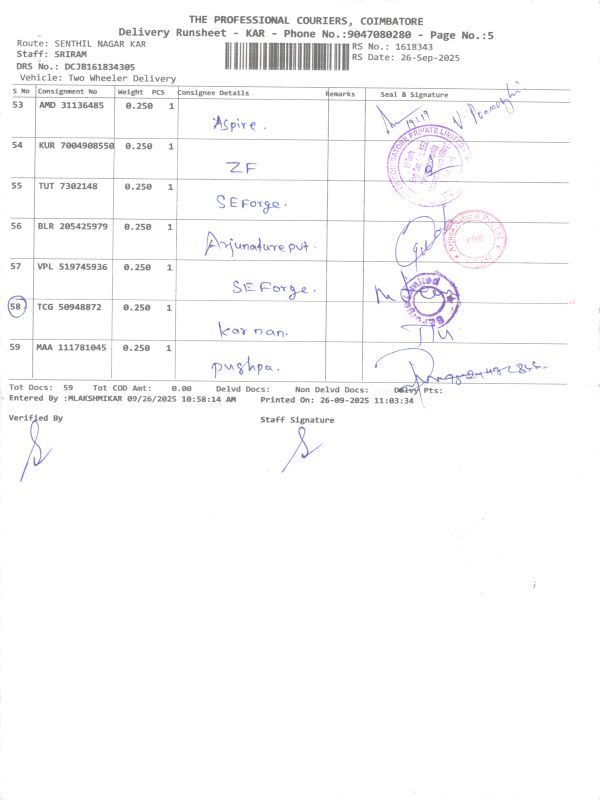 THE PROFESSIONAL COURIERS, COIMBATORE
Delivery Runsheet - KAR - Phone No.:9047080280 - Page No.:5
Route: SENTHIL NAGAR KAR RS No.: 1618343
Staff: SRIRAM RS Date: 26-Sep-2025
DRS No.: DCJB161834305
Vehicle: Two Wheeler Delivery
S No Consignment No Weight PCS Consignee Details Remarks Seal & Signature
53 AMD 31136485 0.250 1
Aspire.
54 KUR 7004908550 0.250 1
ZF
55 TUT 7302148 0.250 1
SEForge.
56 BLR 205425979 0.250 1
Arjunature pvt.
57 VPL 519745936 0.250 1
SEForge.
58 TCG 50948872 0.250 1
karnan.
59 MAA 111781045 0.250 1
pushpa.
Tot Docs: 59 Tot COD Amt: 0.00 Delvd Docs: Non Delvd Docs: Delvy Pts:
Entered By :MLAKSHMIKAR 09/26/2025 10:58:14 AM Printed On: 26-09-2025 11:03:34
Verified By Staff Signature